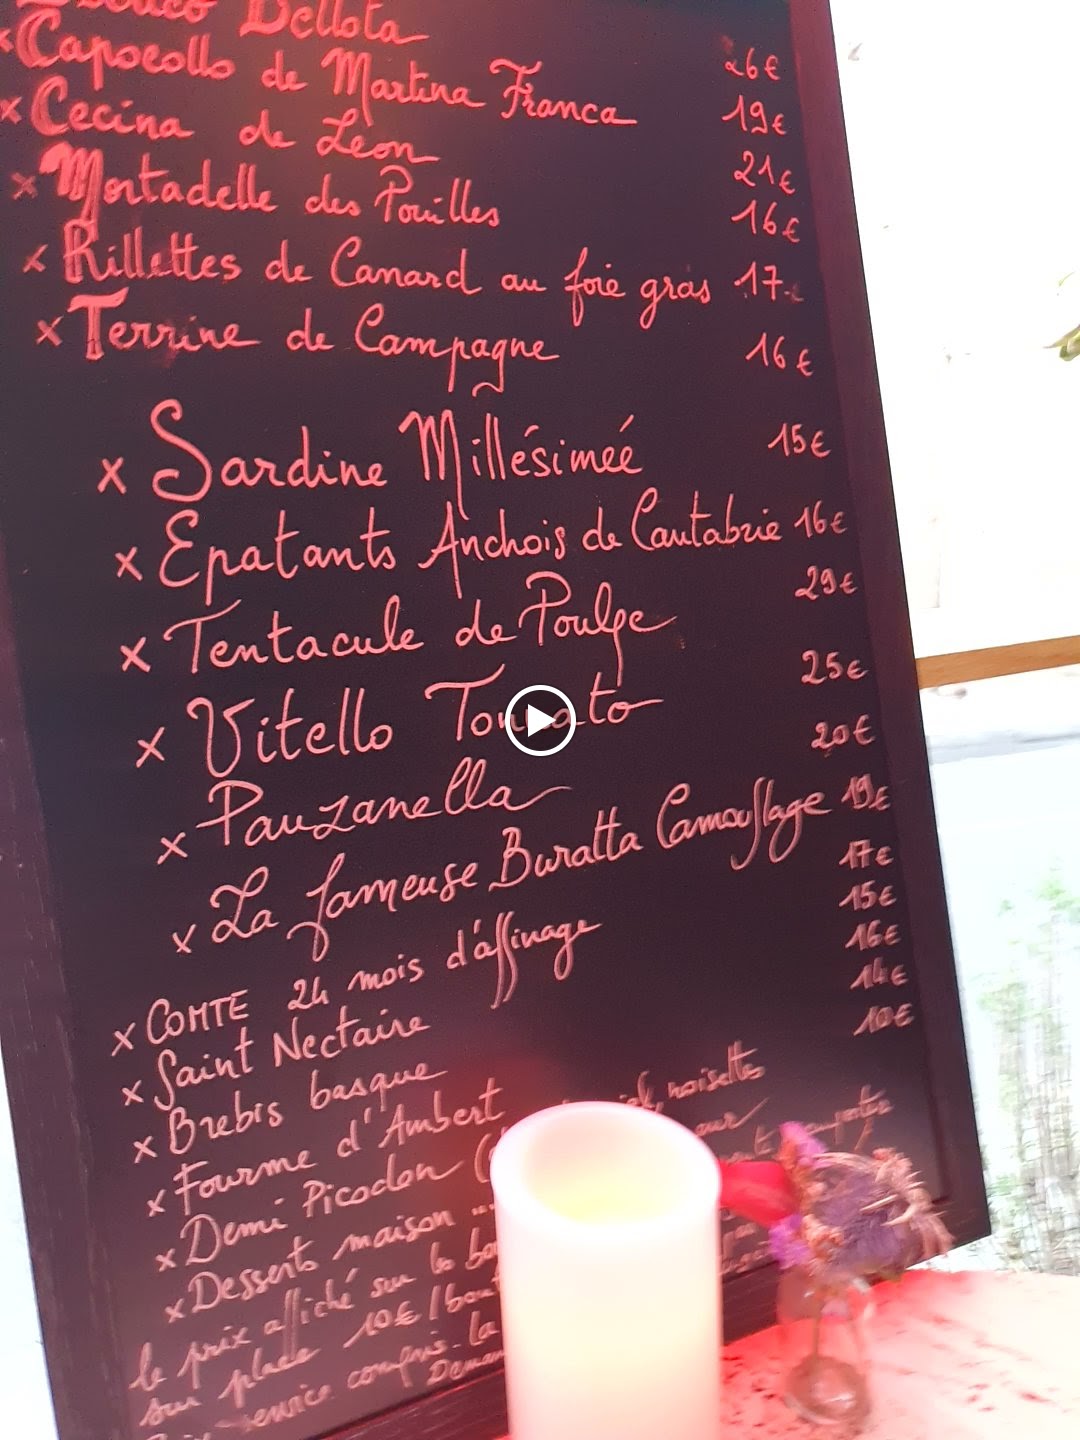 Bellota
x Capocollo de Martina Franca 26€
x Cecina de Léon 19€
x Mortadelle des Pouilles 21€
x Rillettes de Canard au foie gras 16€
x Terrine de Campagne 17.€
16€
x Sardine Millésimée 15€
x Epatants Anchois de Cantabrie 16€
x Tentacule de Poulpe 29€
x Vitello Tonnato 25€
x Panzanella 20€
x La fameuse Buratta Camouflage 19€
x COMTE 24 mois d'affinage 17€
x Saint Nectaire 15€
x Brebis basque 16€
x Fourme d'Ambert 14€
x Demi Picodon ( miel, noisettes 10€
x Desserts maison
le prix affiché sur la
sur place 10€/
service compris. La